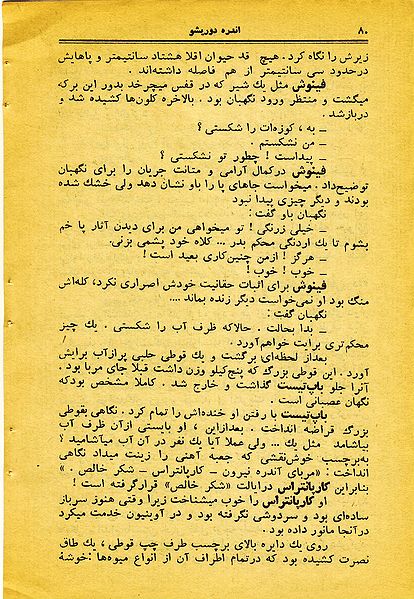 ۸۰ اندره دوریشو
زیرش را نگاه کرد. هیچ قد حیوان اقلا هشتاد سانتیمتر و پاهایش
درحدود سی سانتیمتر از هم فاصله داشته‌اند.
فینوش مثل یك شیر که در قفس میچرخد بدور این بر که
میگشت و منتظر ورود نگهبان بود. بالاخره کلون‌ها کشیده شد و
دربازشد.
ـ به، کوزه‌ات را شکستی؟
ـ من نشکستم.
ـ پیداست! چطور تو نشکستی؟
فینوش درکمال آرامی و متانت جریان را برای نگهبان
توضیح‌داد. میخواست جاهای پا را باو نشان دهد ولی خشك شده
بودند و دیگر چیزی پیدا نبود
نگهبان باو گفت:
ـ خیلی زرنگی! تو میخواهی من برای دیدن آثار پا خم
پشوم تا یك اردنگی محکم بدر ... کلاه خود پشمی بزنی.
ـ هرگز! ازمن چنین‌کاری بعید است!
ـ خوب! خوب!
فینوش برای اثبات حقانیت خودش اصراری نکرد، کله‌اش
منگ بود او نمی‌خواست دیگر زنده بماند ....
نگهبان گفت:
ـ بدا بحالت. حالاکه ظرف آب را شکستی. یك چیز
محکم‌تری برایت خواهم‌آورد.
بعداز لحظه‌ای برگشت و یك قوطی حلبی پرازآب برایش
آورد. این قوطی بزرگ که پنج‌کیلو وزن داشت قبلا جای مربا بود.
آنرا جلو باپ‌تیست گذاشت و خارج شد. کاملا مشخص بودکه
نگهبان عصبانی است.
باپ‌تیست با رفتن او خنده‌اش را تمام کرد. نگاهی بقوطی
بزرگ قراضه انداخت. بعدازاین، او بایستی ازآن ظرف آب
بیاشامد مثل یك ... ولی عملا آیا یك نفر در آن آب میآشامید؟
به‌برچسب خوش‌نقشی که جعبه آهنی را زینت میداد نگاهی
انداخت: «مربای آندره نیرون ـ کارپانتراس ـ شکر خالص.»
بنابراین کارپانتراس درایالت «شکر خالص» قرارگرفته است!
او کارپانتراس را خوب میشناخت زیرا وقتی هنوز سرباز
ساده‌ای بود و سردوشی نگرفته بود و در آوینیون خدمت میکرد
درآنجا مانور داده بود.
روی یك دایره بالای برچسب طرف چپ قوطی، یك طاق
نصرت کشیده بود که درتمام اطراف آن از انواع میوه‌ها: خوشهٔ